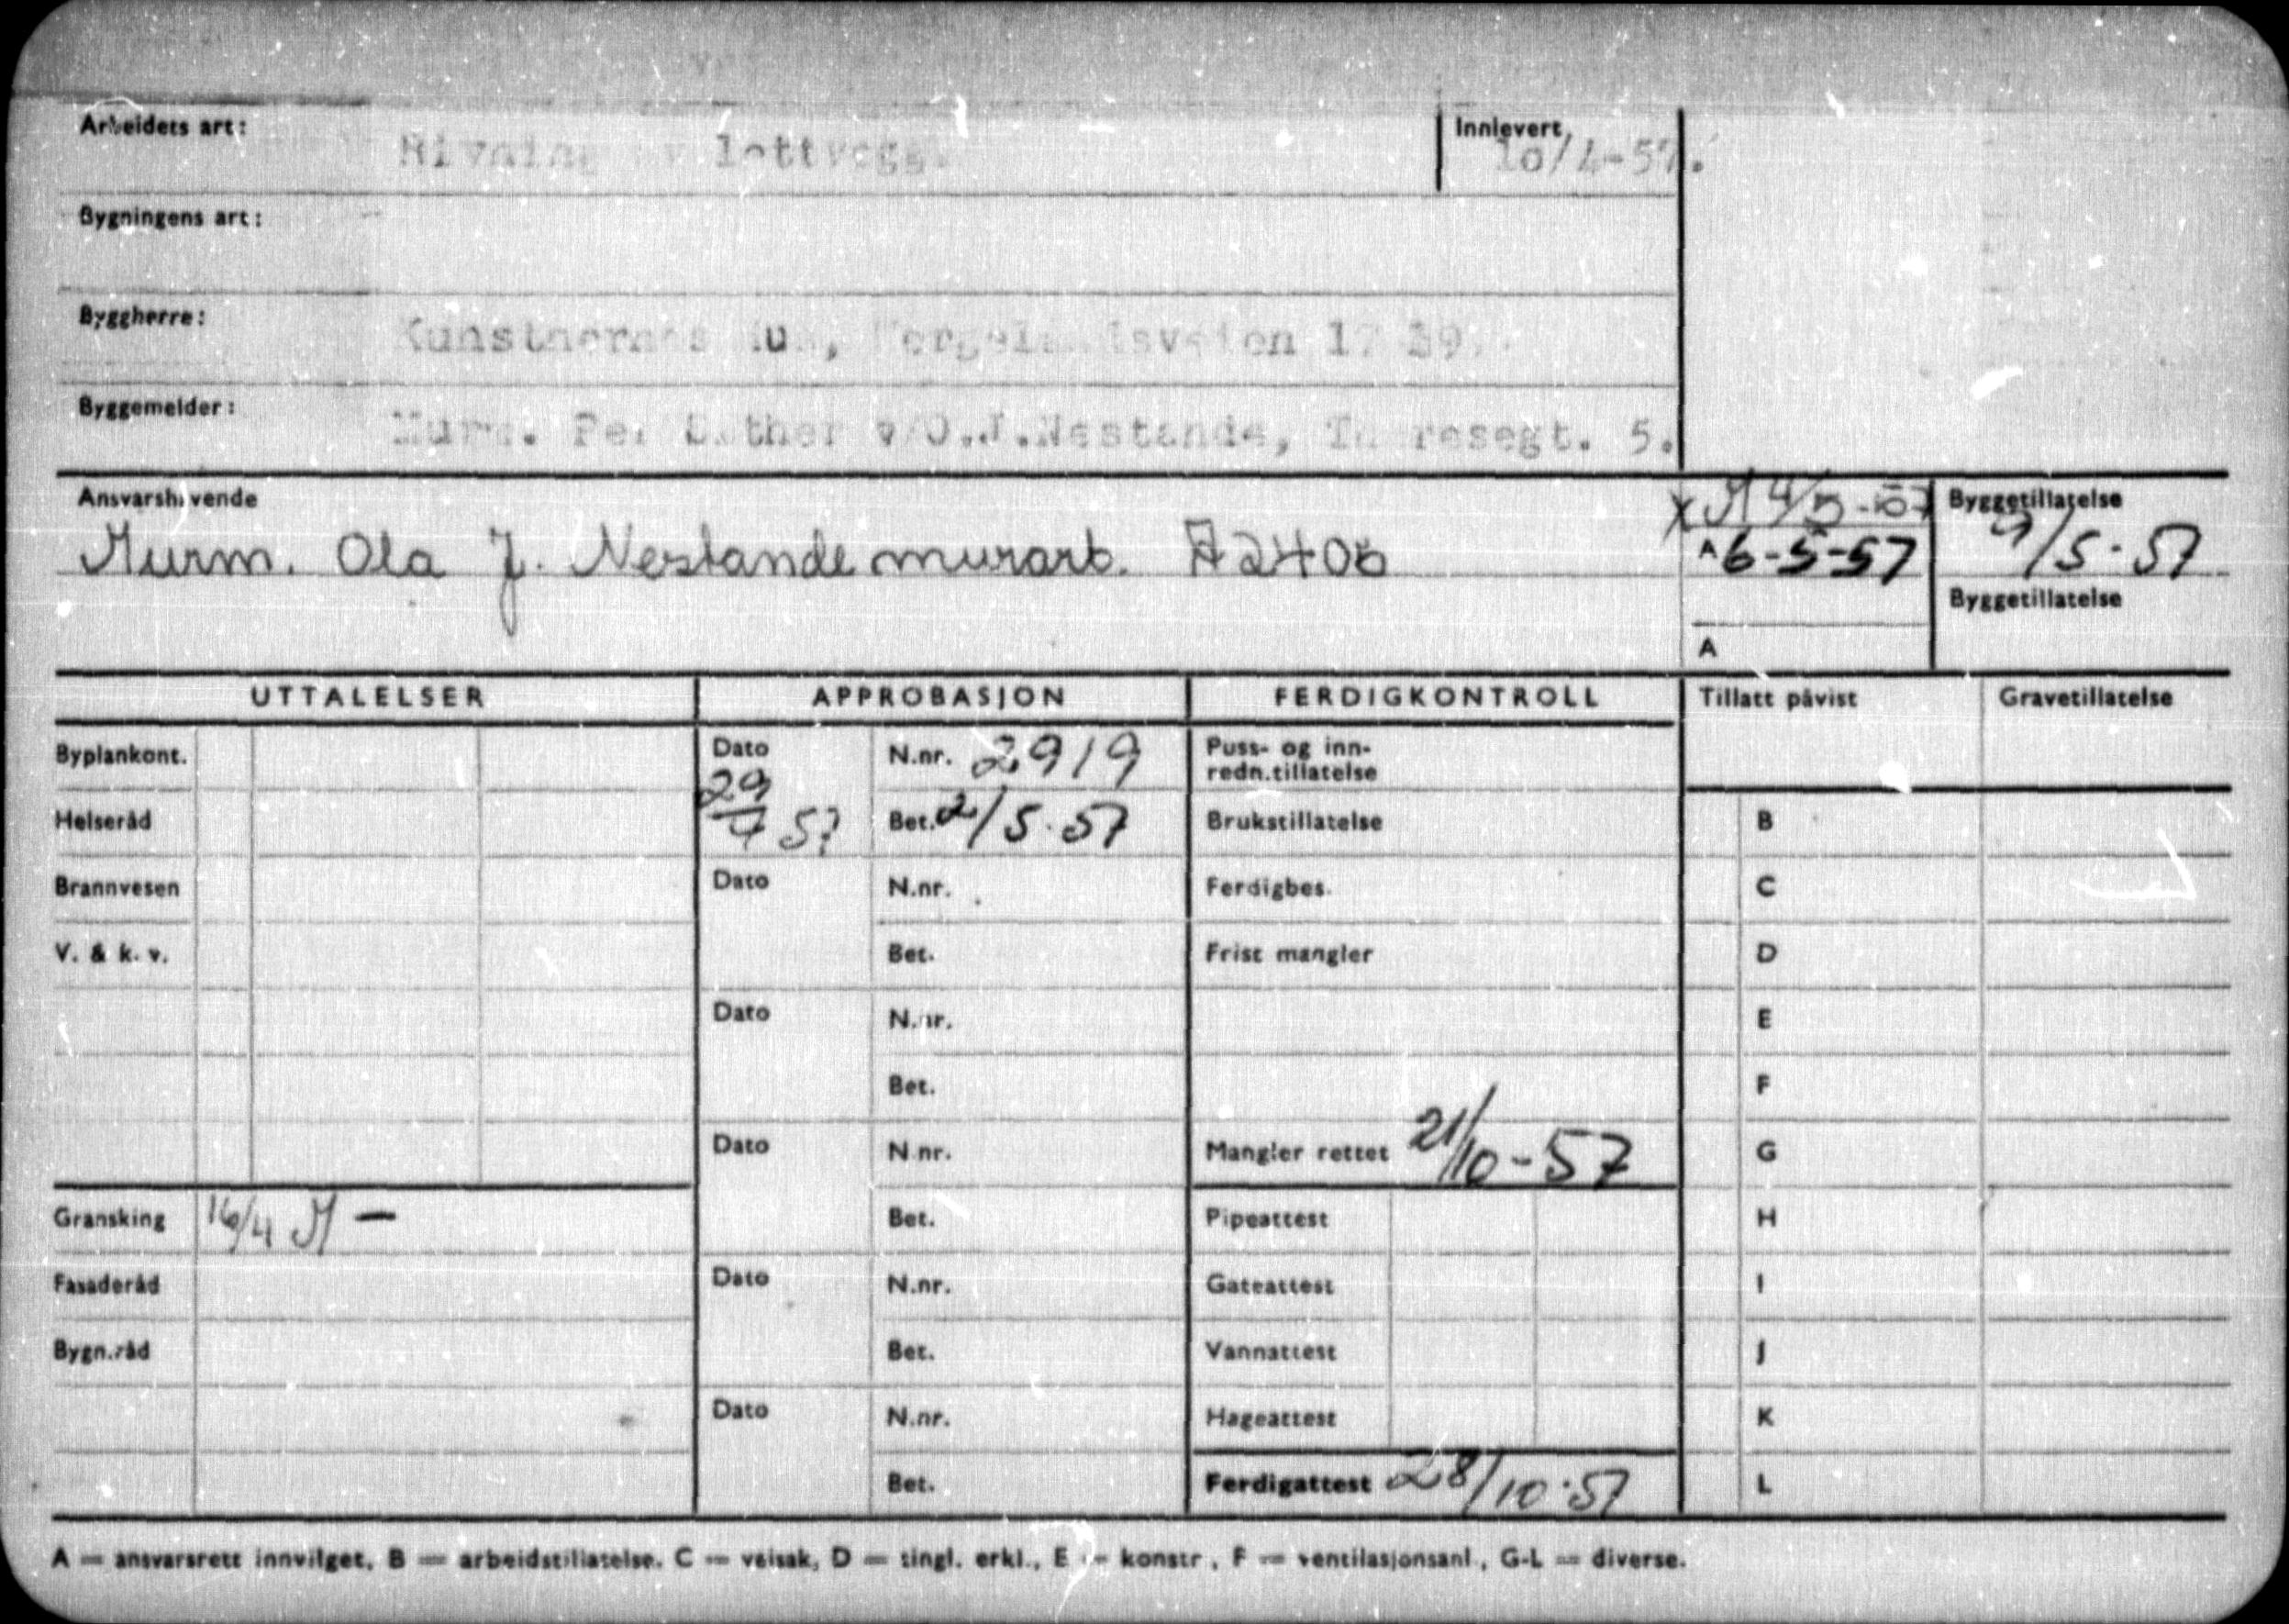 Arbeidets art: Rivning av lettvegg. Innlevert 10/4-57.
Bygningens art:
Byggherre: Kunstnernes Hus, Wergelandsveien 17
Byggemelder: Murm. Per Sæther v/O.J.Nestande, Theresegt. 5.
Ansvarshavende
Murm. Ola J. Nestande murarb.
A 6-5-57
Byggetillatelse 9/5-57
Byggetillatelse
A
UTTALELSER APPROBASJON FERDIGKONTROLL Tillatt påvist Gravetillatelse
Byplankont. Dato 29/4 57 N.nr. 2919 Puss- og inn-
redn.tillatelse
Helseråd Bet. 2/5-57 Brukstillatelse B
Brannvesen Dato N.nr. Ferdigbes. C
V. & k. v. Bet. Frist mangler D
Dato N.nr. E
Bet. F
Dato N.nr. Mangler rettet 21/10-57 G
Gransking 16/4 Bet. Pipeattest H
Fasaderåd Dato N.nr. Gateattest I
Bygn.råd Bet. Vannattest J
Dato N.nr. Hageattest K
Bet. Ferdigattest 28/10-57 L
A = ansvarsrett innvilget, B = arbeidstillatelse, C = veisak, D = tingl. erkl., E = konstr., F = ventilasjonsanl., G-L = diverse.